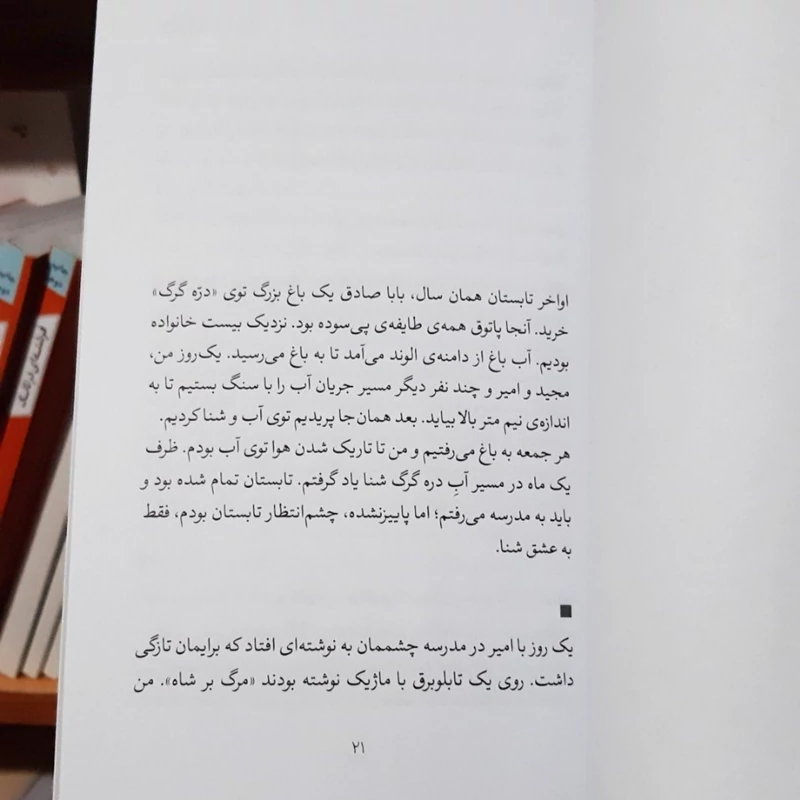 اواخر تابستان همان سال، بابا صادق یک باغ بزرگ توی «درّه گرگ»
خرید. آنجا پاتوق همه‌ی طایفه‌ی پی‌سوده بود. نزدیک بیست خانواده
بودیم. آب باغ از دامنه‌ی الوند می‌آمد تا به باغ می‌رسید. یک‌روز من،
مجید و امیر و چند نفر دیگر مسیر جریان آب را با سنگ بستیم تا به
اندازه‌ی نیم متر بالا بیاید. بعد همان‌جا پریدیم توی آب و شنا کردیم.
هر جمعه به باغ می‌رفتیم و من تا تاریک شدن هوا توی آب بودم. ظرف
یک ماه در مسیر آبِ دره گرگ شنا یاد گرفتم. تابستان تمام شده بود و
باید به مدرسه می‌رفتم؛ اما پاییزنشده، چشم‌انتظار تابستان بودم، فقط
به عشق شنا.
یک روز با امیر در مدرسه چشممان به نوشته‌ای افتاد که برایمان تازگی
داشت. روی یک تابلوبرق با ماژیک نوشته بودند «مرگ بر شاه». من
۲۱